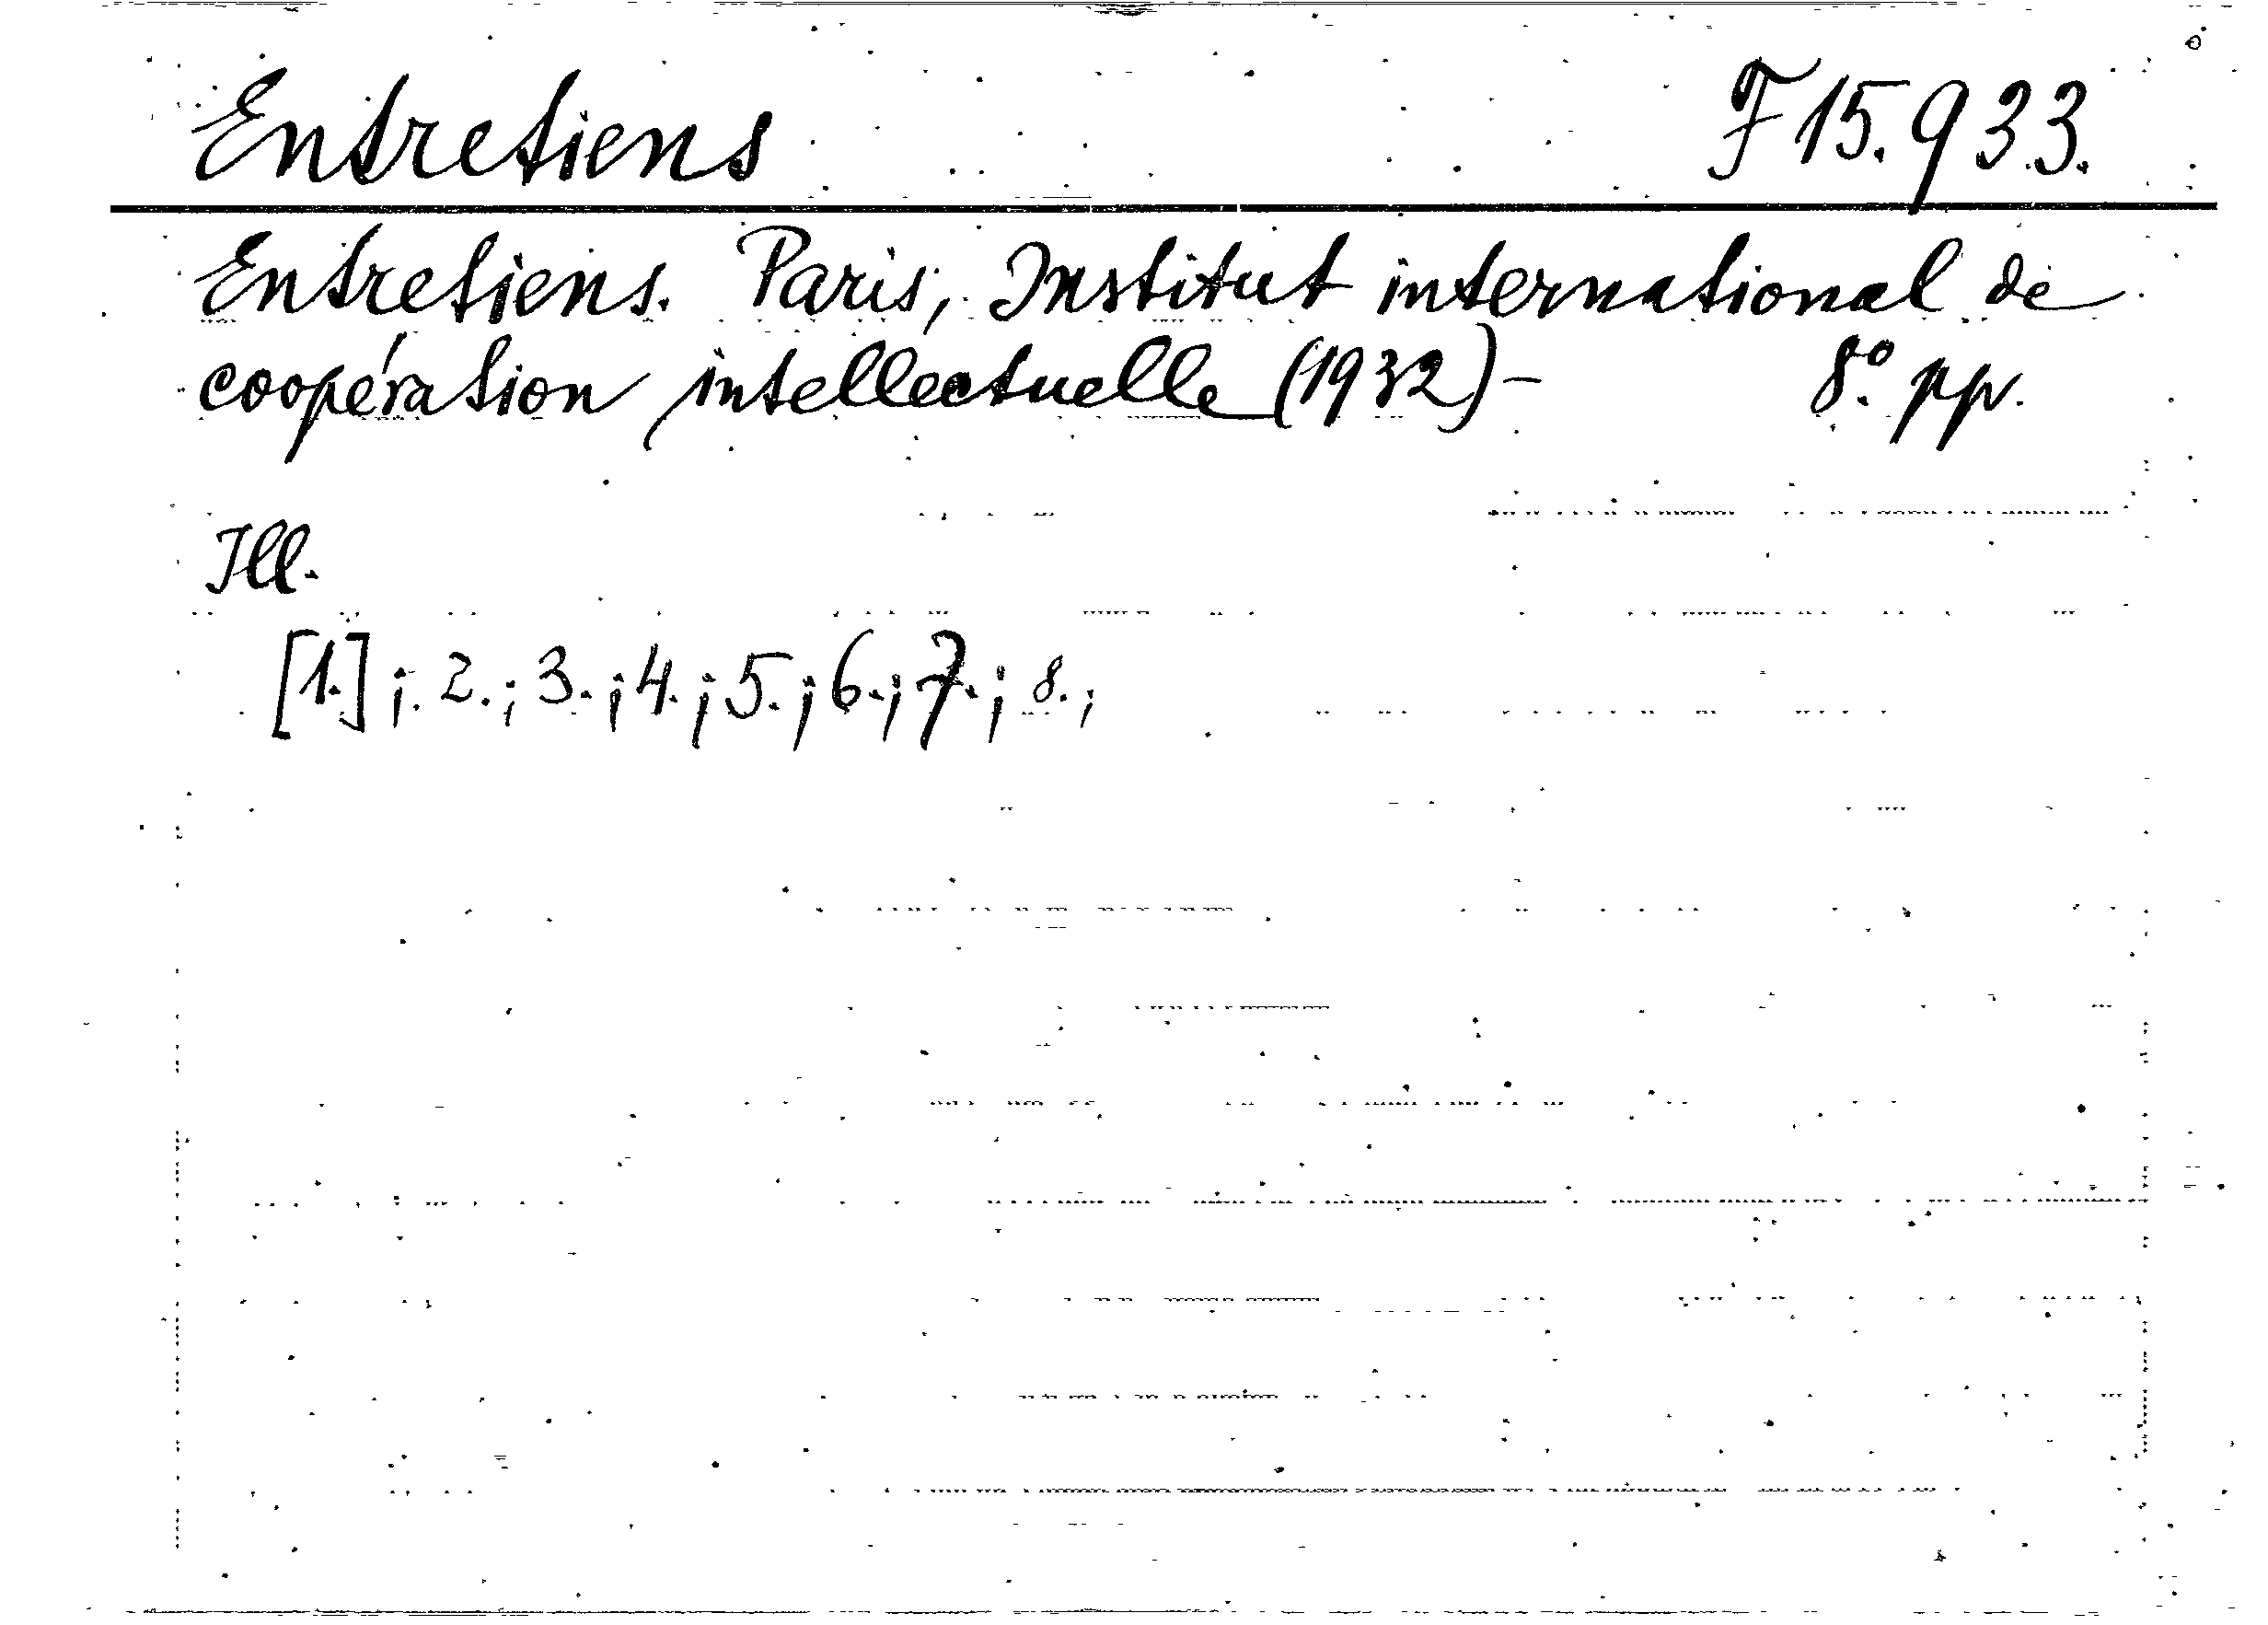 Entretiens F 15.933.
Entretiens. Paris, Institut international de
coopération intellectuelle (1932)- 8° pp.
Ill.
[1.]; 2.; 3.; 4.; 5.; 6.; 7.; 8.;